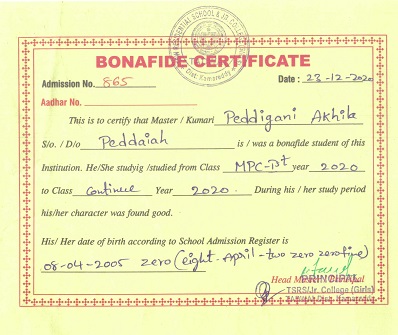 BONAFIDE CERTIFICATE
Admission No. 865 Date : 23-12-2020
Aadhar No.
This is to certify that Master / Kumari Peddigani Akhila
S/o. / D/o Peddaiah is / was a bonafide student of this
Institution. He/She studyig /studied from Class MPC-Ist year 2020
to Class Continue Year 2020. During his / her study period
his/her character was found good.
His/ Her date of birth according to School Admission Register is
08-04-2005 zero (eight-April-two zero zero five)
Head Master / Principal
PRINCIPAL
TSRS/Jr. College (Girls)